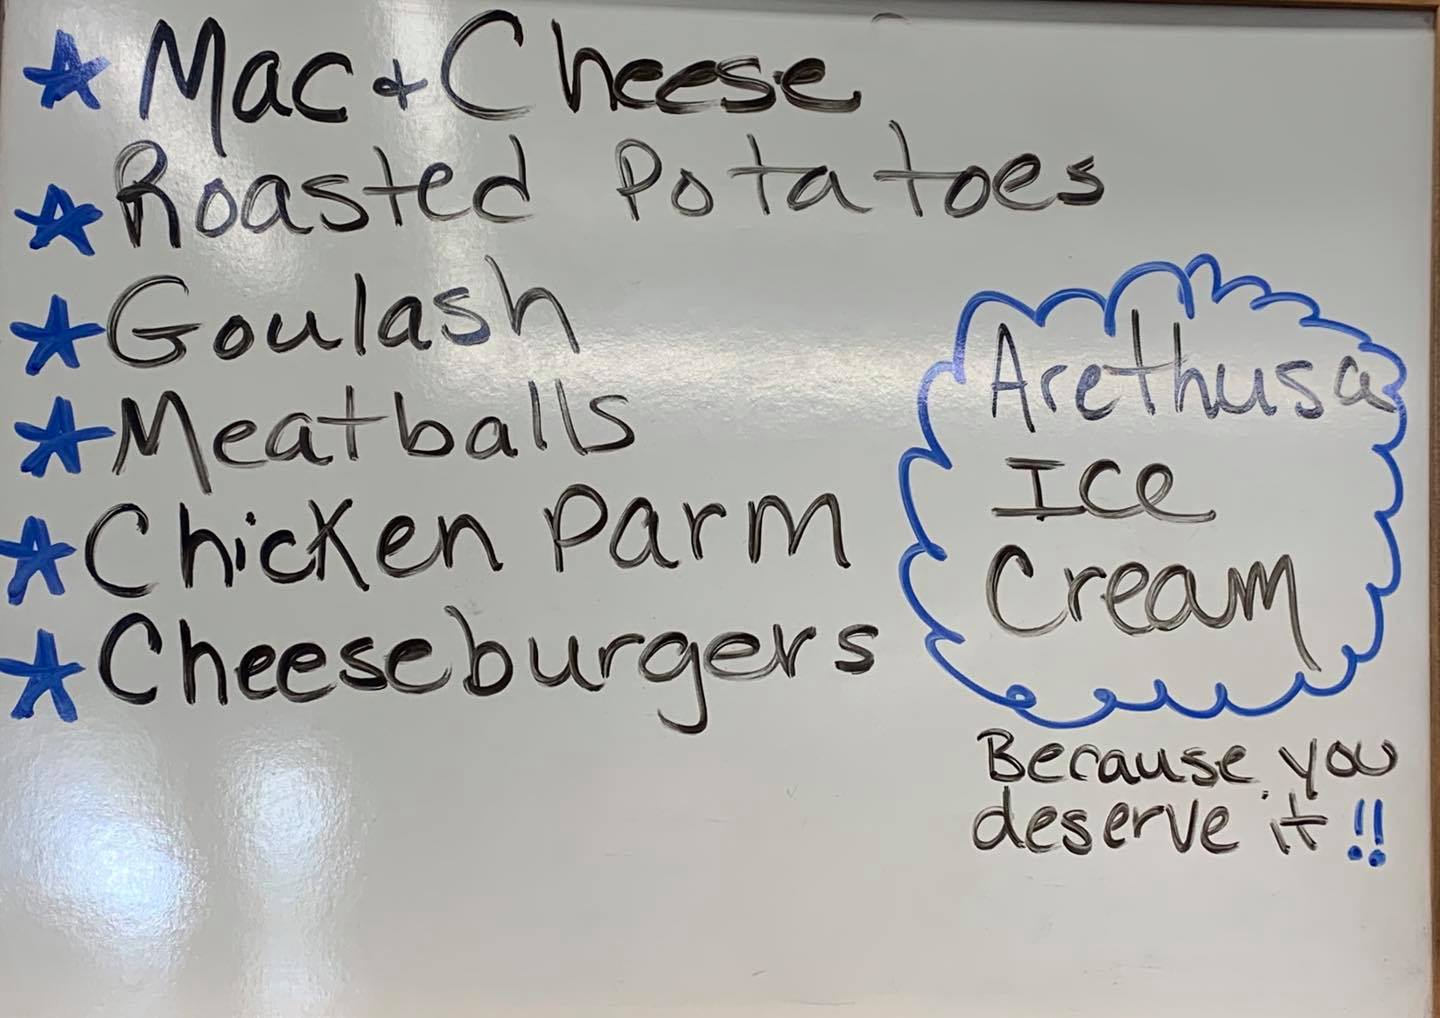 Mac + Cheese
Roasted Potatoes
Goulash
Meatballs
Chicken Parm
Cheeseburgers
Arethusa
Ice
Cream
Because you
deserve it!!